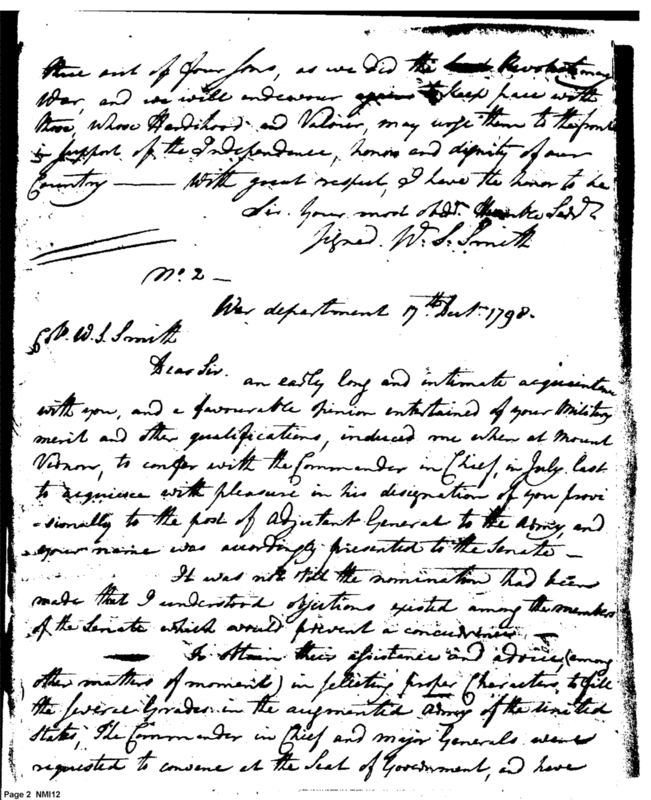 three out of four sons, as we did the Revolutionary
War, and we will endeavour to keep pace with
those, whose Hardihood and Valour, may urge them to the front
in support of the Independence, honor and dignity of our
Country —— With great respect, I have the honor to be
Sir. Your most Obdt. Humble Servt.
Signed. W. S. Smith
No. 2 —
War department 17th Decr. 1798.
Col. W. S. Smith
Dear Sir.
an early long and intimate acquaintance
with you, and a favourable opinion entertained of your Military
merit and other qualifications, induced me when at Mount
Vernon, to confer with the Commander in Chief, in July last
to acquiesce with pleasure in his designation of you provi
-sionally to the post of Adjutant General to the Army, and
your name was accordingly presented to the Senate —
It was not till the nomination had been
made that I understood objections existed among the members
of the Senate which would prevent a concurrence —
To obtain their assistance and advice (among
other matters of moment) in selecting proper Characters, to fill
the several Grades in the augmented Army of the United
States, The Commander in Chief and major Generals were
requested to convene at the Seat of Government, and have
Page 2 NMI12